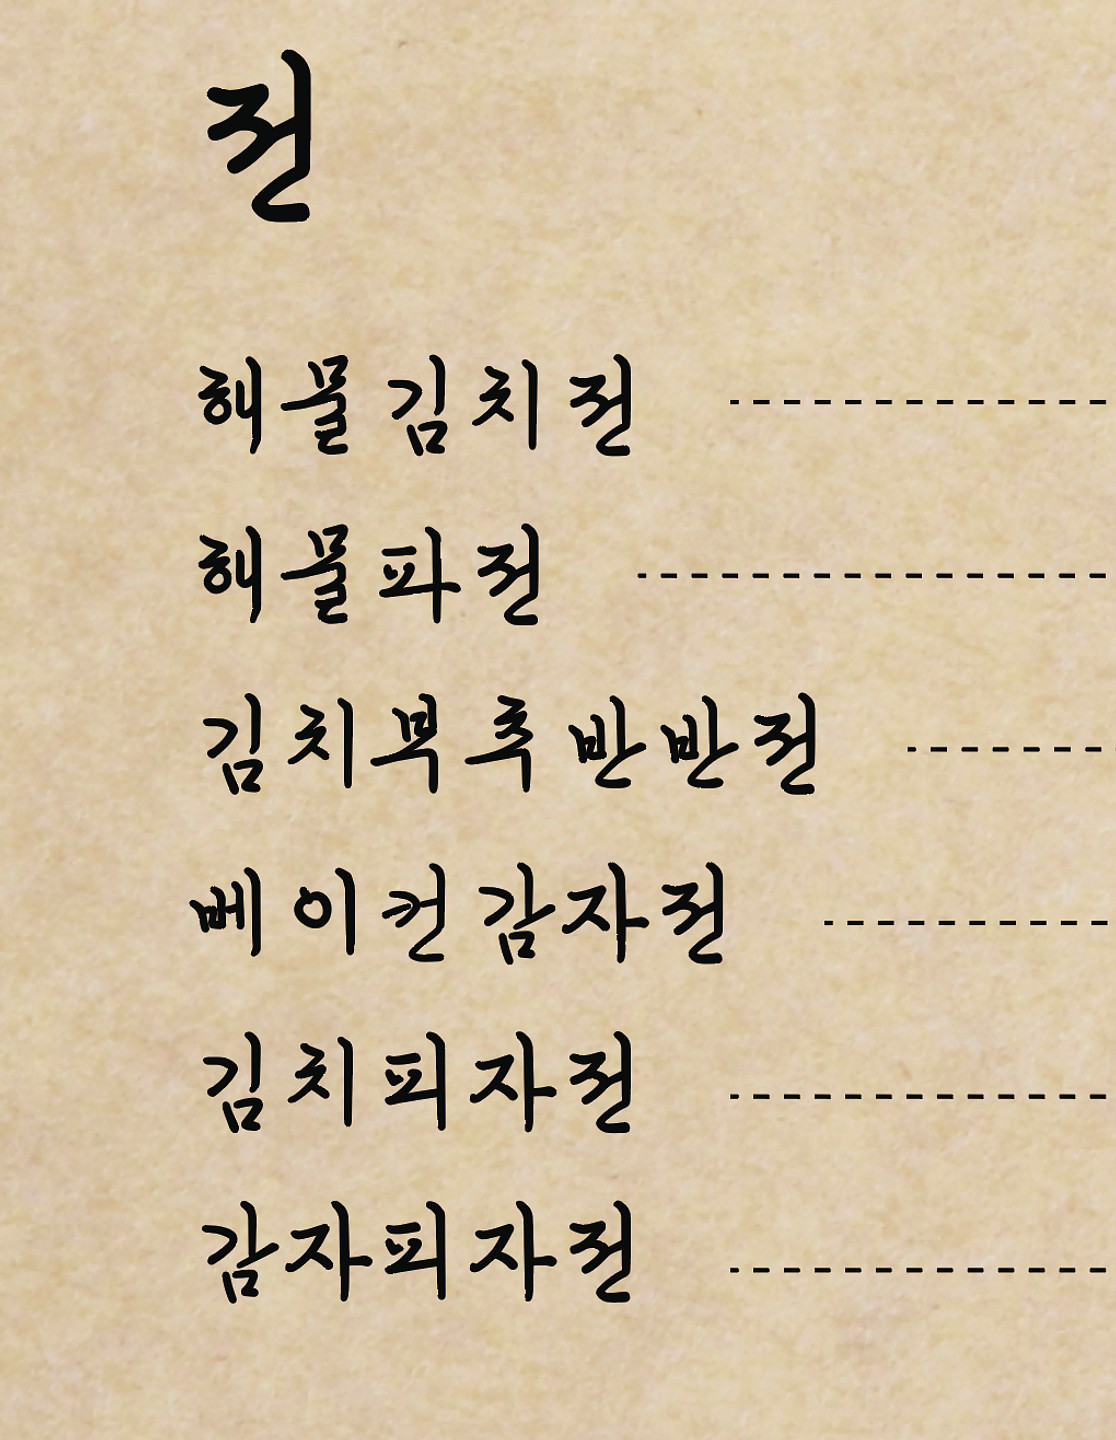 전
해물김치전
해물파전
김치부추반반전
베이컨감자전
김치피자전
감자피자전